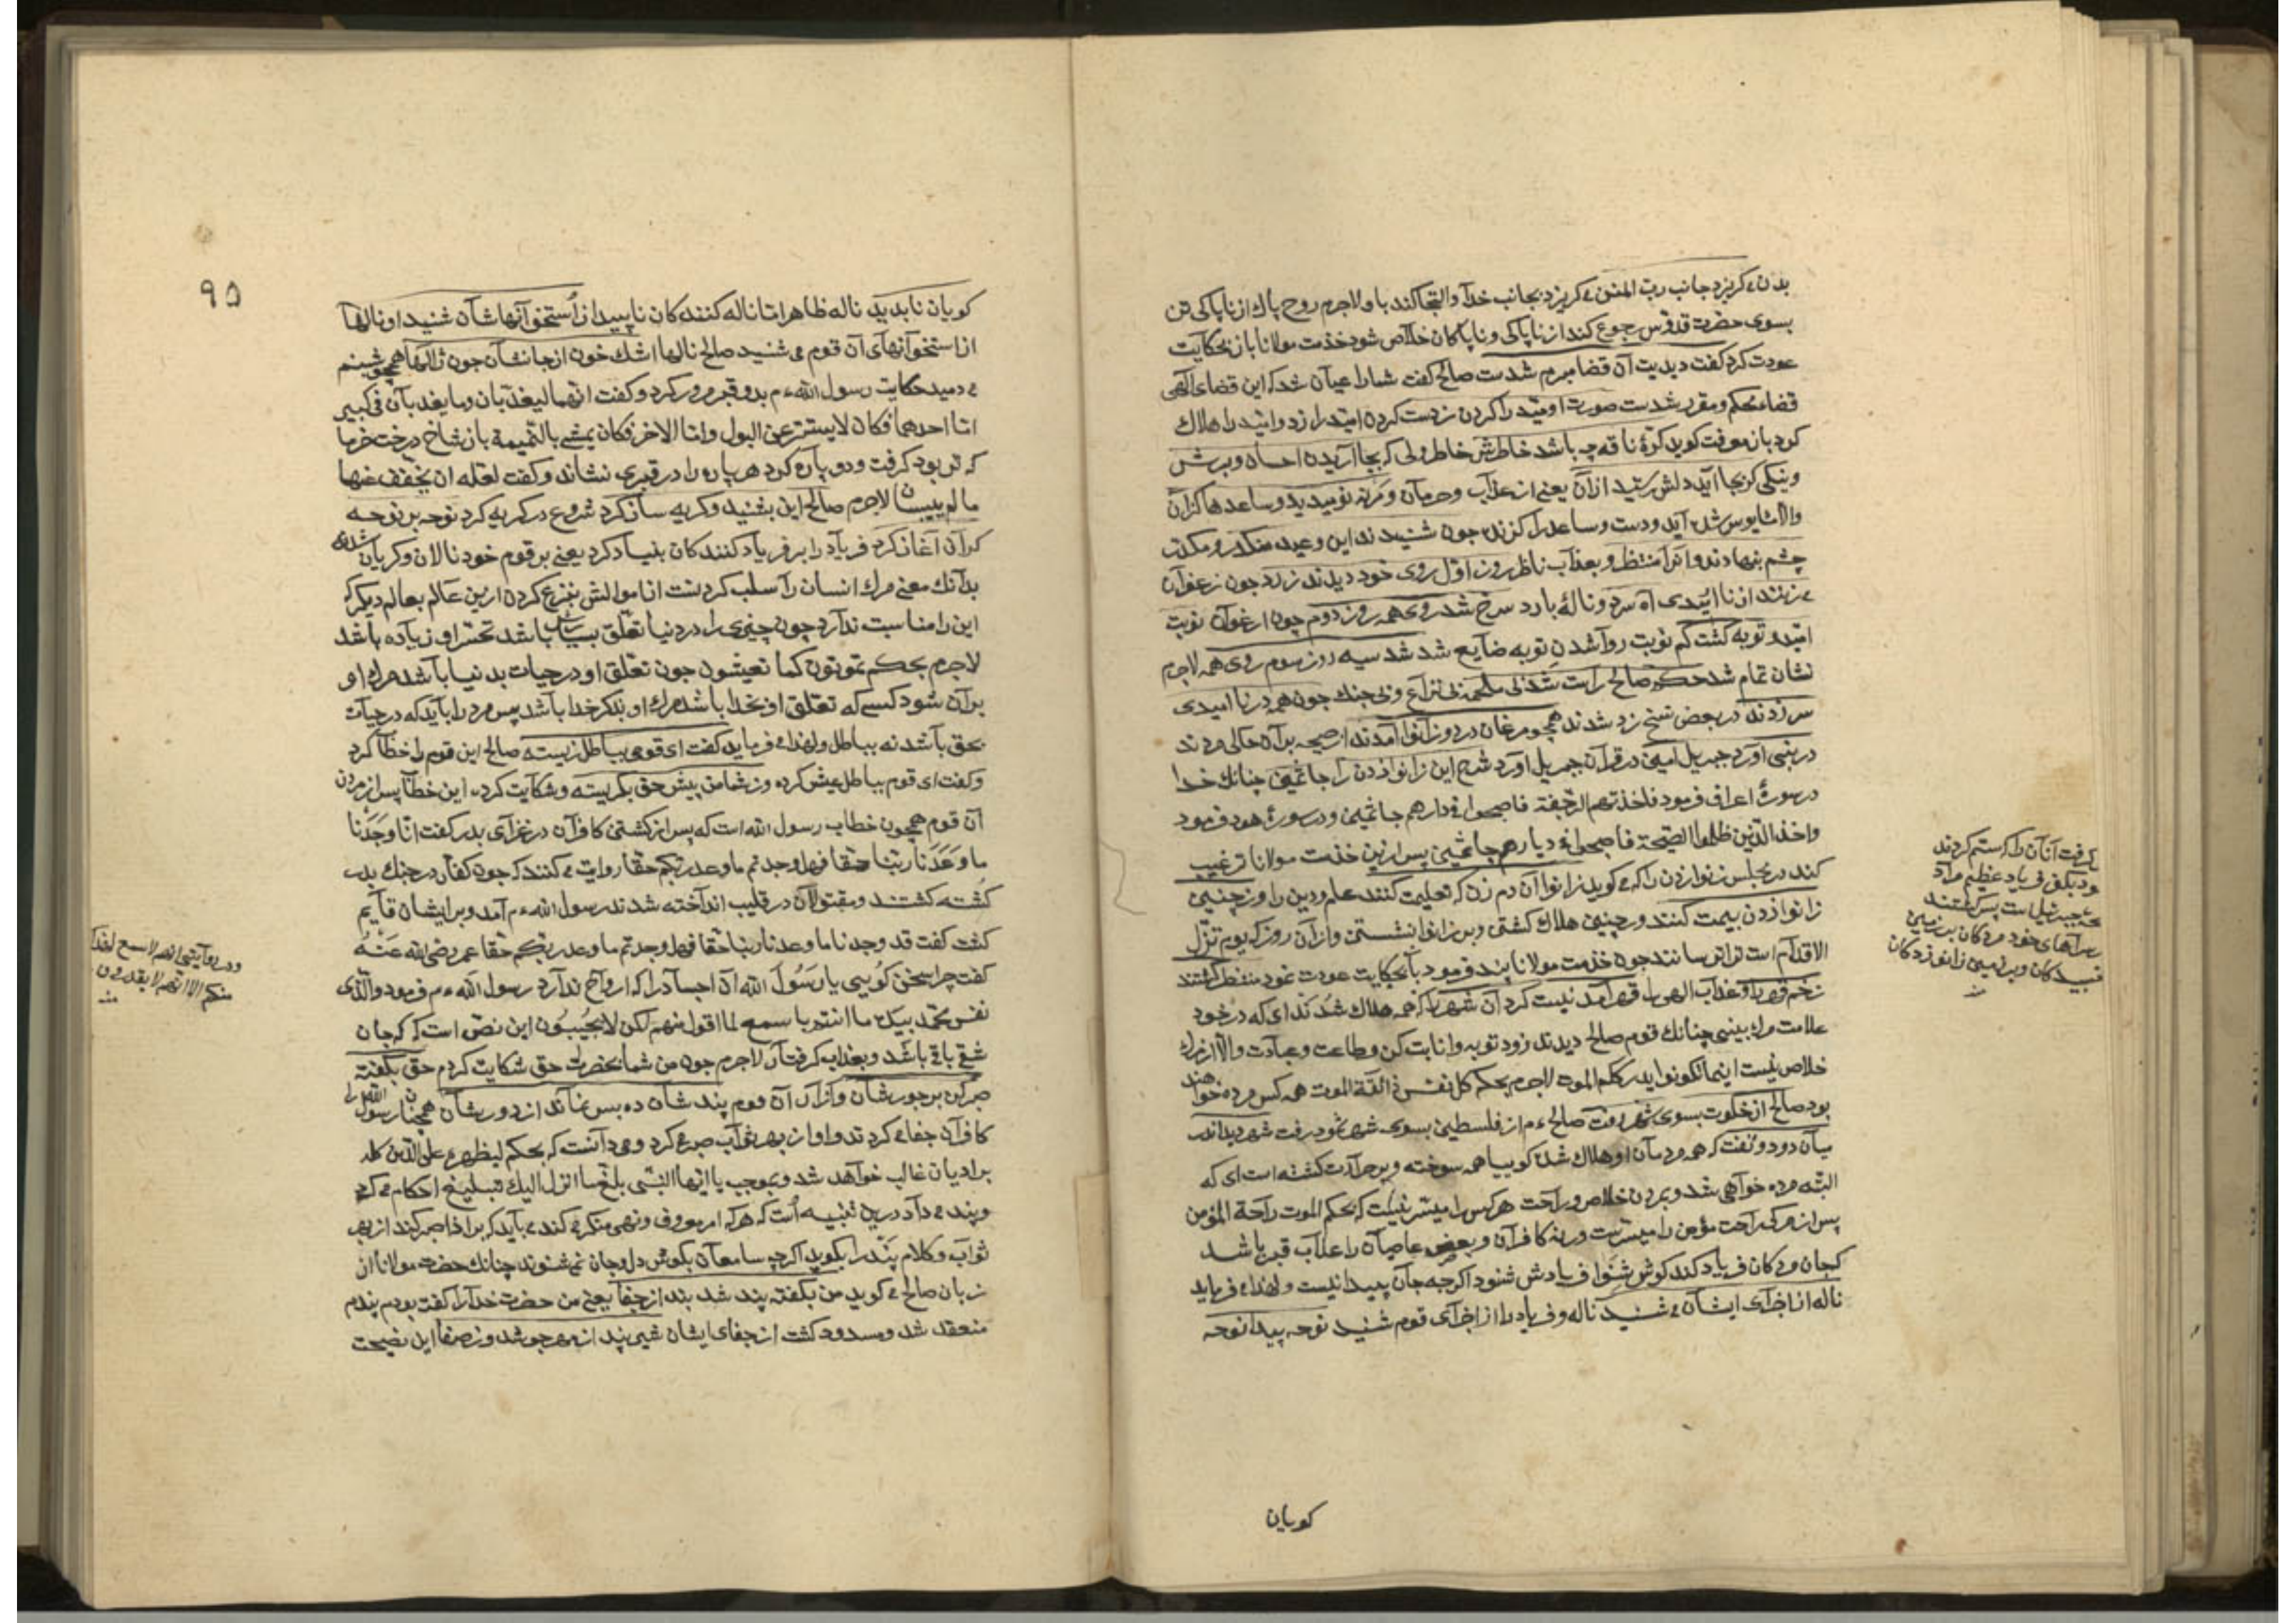 بدن می کریزد جانب رب المنن می کریزد بجانب خدا و التجا کند باو لاجرم روح پاك از ناپاکی تن
بسوی حضرت قدوس رجوع کند از ناپاکی و ناپاکان خلاص شود خدمت مولانا باز بحکایت
عودت کرد کفت دیدیت آن قضا مبرم شدست صالح کفت شمارا عیان شد که این قضای الهی
قضاء محکم و مقرر شدست صورت اومید را کردن زدست کردن امید را زد و امید را هلاك
کرد باز معرفت کوید کرّۀ ناقه چه باشد خاطرش خاطر ولی که بجا آریدن احسان و برش
و نیکی کر بجا آید دلش رستید از آن یعنی از عذاب و حرمان و مرنه نومیدید و ساعدها کزان
والا مأیوس شده آید و دست و ساعد را کزنده چون شنیدند این وعید منکدر و مکدر
چشم بنهادند و آنرا منتظر و بعذاب ناظر روز اول روی خود دیدند زرد چون زعفران
می زدند از ناامیدی آه سرد و نالۀ بارد سرخ شد روی همه روز دوم چون ارغوان نوبت
امید و توبه کشت کم نوبت روا شدن توبه ضایع شد شد سیه روز سوم روی همه لاجرم
نشان تمام شد حکم صالح راست شد بی ملحمه بی نزاع و بی جنك چون همه در ناامیدی
سر زدند در بعض نسخ زد شدند همچو مرغان در دو زانو آمدند از صیحه بر آن حالی مردند
در نبی آورد جبریل امین در قرآن جبریل آورد شرح این زانو زدن را جاثمین چنانك خدا
در سورۀ اعراف فرمود فاخذتهم الرجفة فاصبحوا فی دارهم جاثمین و در سورۀ هود فرمود
واخذ الذین ظلموا الصیحة فاصبحوا فی دیارهم جاثمین پس ازین خدمت مولانا ترغیب
کند در مجلس زانو زدن را که می کوید زانو آن دم زن که تعلیمت کنند علم و دین را وز چنین
زانو زدن بیمت کنند و چنین هلاك کشتن و بر زانو نشستن و از آن روز که یوم تزل
الاقدام است ترا ترسانند چون خدمت مولانا پند فرمود بآن حکایت عودت نمود منتظر کشتند
زخم قهر را و عذاب الهی را قهر آمد نیست کرد آن شهر را که همه هلاك شدند ای که در خود
علامت مرك بینی چنانك قوم صالح دیدند زود توبه و انابت کن و طاعت و عبادت والا از مرك
خلاص نیست اینما تکونوا یدرککم الموت لاجرم بحکم کل نفس ذائقة الموت همه کس مرده خواهند
بود صالح از خلوت بسوی شهر رفت صالح ءم از فلسطین بسوی شهر ثمود رفت شهر دید اندر
میان دود و تفت که همه مردمان او هلاك شده کوییا همه سوخته و پر حرارت کشته است ای که
البته مرده خواهی شد و بمردن خلاص و راحت هر کس را میسر نیست که بحکم الموت راحة المؤمن
پس از مرك راحت مؤمن را میسرست ورنه کافران و بعض عاصیان را عذاب قبر باشد
که جان مردکان فریاد کند کوش شنوا فریادش شنود اکرچه جان پیدا نیست و لهذا می فرماید
ناله از اجزای ایشان می شنید ناله و فریاد را از اجزای قوم شنید نوحه پیدا نوحه
کویان
که رفت آنان را که ستم کردند
فریاد عظیم مراد
جبرئیل است پس کشتند
سراهای خود مردکان بر زمین
و بر زمین زانو زدکان
منه
٩٥
کویان نابدید ناله ظاهر اما ناله کنندکان ناپیدا ز استخوانهاشان شنید او نالها
از استخوانهای آن قوم می شنید صالح نالها اشك خون از جانشان چون ژالها همچو شبنم
می دمید حکایت رسول الله ءم بدو قبر مرور کرد و کفت انهما لیعذبان وما یعذبان فی کبیر
اما احدهما فکان لا یستتر عن البول واما الاخر فکان یمشی بالنمیمة باز شاخ درخت خرما
که تر بود کرفت و دو پاره کرد هر پاره را در قبری نشاند و کفت لعله ان یخفف عنهما
ما لم ییبسان لاجرم صالح این بشنید و کریه ساز کرد شروع در کریه کرد نوحه بر نوحه
کران آغاز کرد فریاد را بر فریاد کنندکان بنیاد کرد یعنی بر قوم خود نالان و کریان شده
بدآنك معنی مرك انسان را سلب کردنست از اموالش بنزع کردن ازین عالم بعالم دیکر که
این را مناسبت ندارد چون چیزی را در دنیا تعلق بسیارش باشد تحسر او زیاده باشد
لاجرم بحکم تموتون کما تعیشون چون تعلق او در حیات بدنیا باشد مرك او
بر آن شود کسی که تعلق او بخدا باشد مرك او بذکر خدا باشد پس مرد را باید که در حیات
بحق باشد نه بباطل و لهذا می فرماید کفت ای قومی بباطل زیسته صالح این قوم را خطاب کرد
و کفت ای قوم بباطل عیش کرده وز شما من پیش حق بکریسته و شکایت کرده این خطاب پس از مردن
آن قوم همچون خطاب رسول الله است که پس از کشتن کافران در غزای بدر کفت انا وجدنا
ما وعدنا ربنا حقا فهل وجدتم ما وعد ربکم حقا روایت می کنند که چون کفار در جنك بدر
کشته کشتند و مقتولان در قلیب انداخته شدند رسول الله ءم آمد و بر ایشان قایم
کشت کفت قد وجدنا ما وعدنا ربنا حقا فهل وجدتم ما وعد ربکم حقا عمر رضی الله عنه
کفت چرا سخن کویی یا رسول الله آن اجساد را که ارواح ندارد رسول الله ءم فرمود والذی
نفس محمد بیده ما انتم باسمع لما اقول منهم لکن لا یجیبون این نص است که که جان
شقی باقی باشد و بعذاب کرفتار لاجرم چون من شما بحضرت حق شکایت کردم حق بکفته
صبر کن بر جورشان وز آن آن قوم پند شان ده بس نماند از دورشان همچنان رسول الله را
کافران جفا می کردند و او از بهر ثواب صبر می کرد و می دانست که بحکم لیظهره علی الدین کله
بر ادیان غالب خواهد شد و بموجب یا ایها النبی بلغ ما انزل الیك تبلیغ احکام می کرد
و پند می داد درین تنبیه است که هر که امر معروف و نهی منکر می کند می باید که بر اذا صبر کند از بهر
ثواب و کلام پند را بکوید اکرچه سامعان بکوش دل و جان نمی شنوند چنانك حضرت مولانا از
زبان صالح می کوید من بکفته پند شد بند از جفا یعنی من حضرت خدا را کفت بودم پندم
منعقد شد و مسدود کشت از جفای ایشان شیر پند از مهر جوشد وز صفا این نصیحت
ودر روایتی انهم لاسمع لهذا
منکم الا انهم لا یقدرون
منه